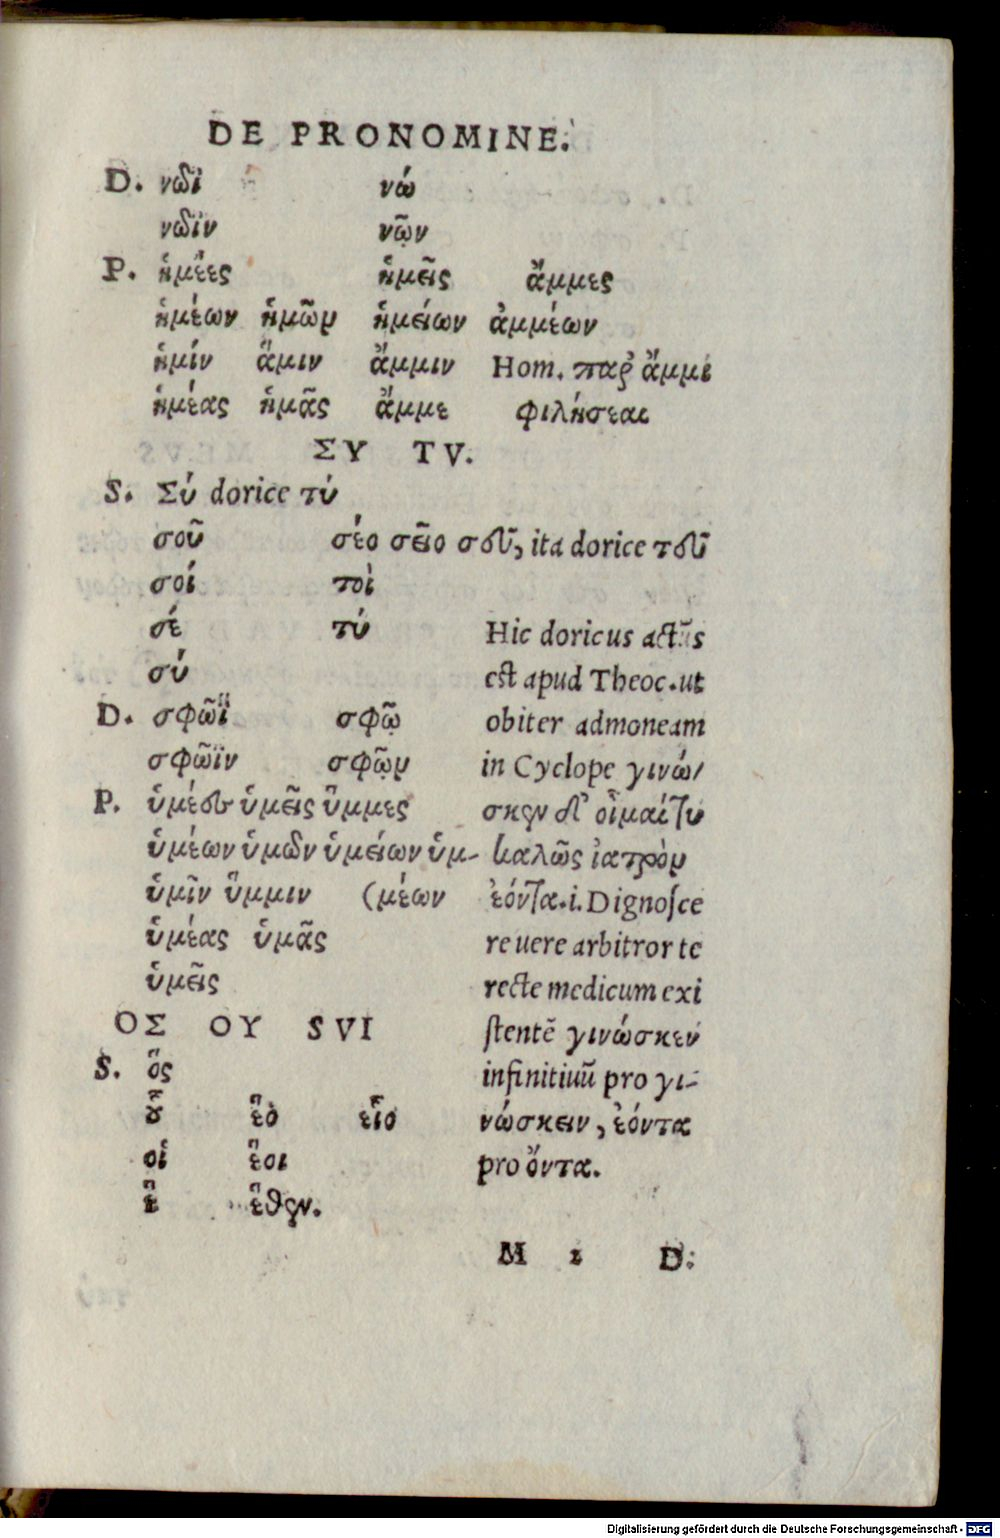 DE PRONOMINE.
D. νῶϊ νώ
νῶϊν νῷν
P. ἡμέες ἡμεῖς ἄμμες
ἡμέων ἡμῶν ἡμείων ἀμμέων
ἡμίν ἅμιν ἄμμιν Hom. παρ' ἄμμι
ἡμέας ἡμᾶς ἄμμε φιλήσεαι
ΣΥ TV.
S. Σύ dorice τύ
σοῦ σέο σεῖο σοῦ, ita dorice τοῦ
σοί τοὶ
σέ τύ Hic doricus actũs
σύ est apud Theoc. ut
D. σφῶϊ σφῷ obiter admoneam
σφῶϊν σφῷν in Cyclope γινώ/
P. ὑμέες ὑμεῖς ὔμμες σκων δ' οἶμαί τυ
ὑμέων ὑμῶν ὑμείων ὑμ- καλῶς ἰατρὸν
ὑμῖν ὔμμιν (μέων ἐόντα. i. Dignosce
ὑμέας ὑμᾶς re uere arbitror te
ὑμεῖς recte medicum exi
ΟΣ ΟΥ SVI stentẽ γινώσκεν
S. ὅς infinitiuũ pro γι-
οὗ ἕο εἷο νώσκειν, ἐόντα
οἷ ἕοι pro ὄντα.
ἓ ἕθων.
M 2 D:
Digitalisierung gefördert durch die Deutsche Forschungsgemeinschaft - DFG